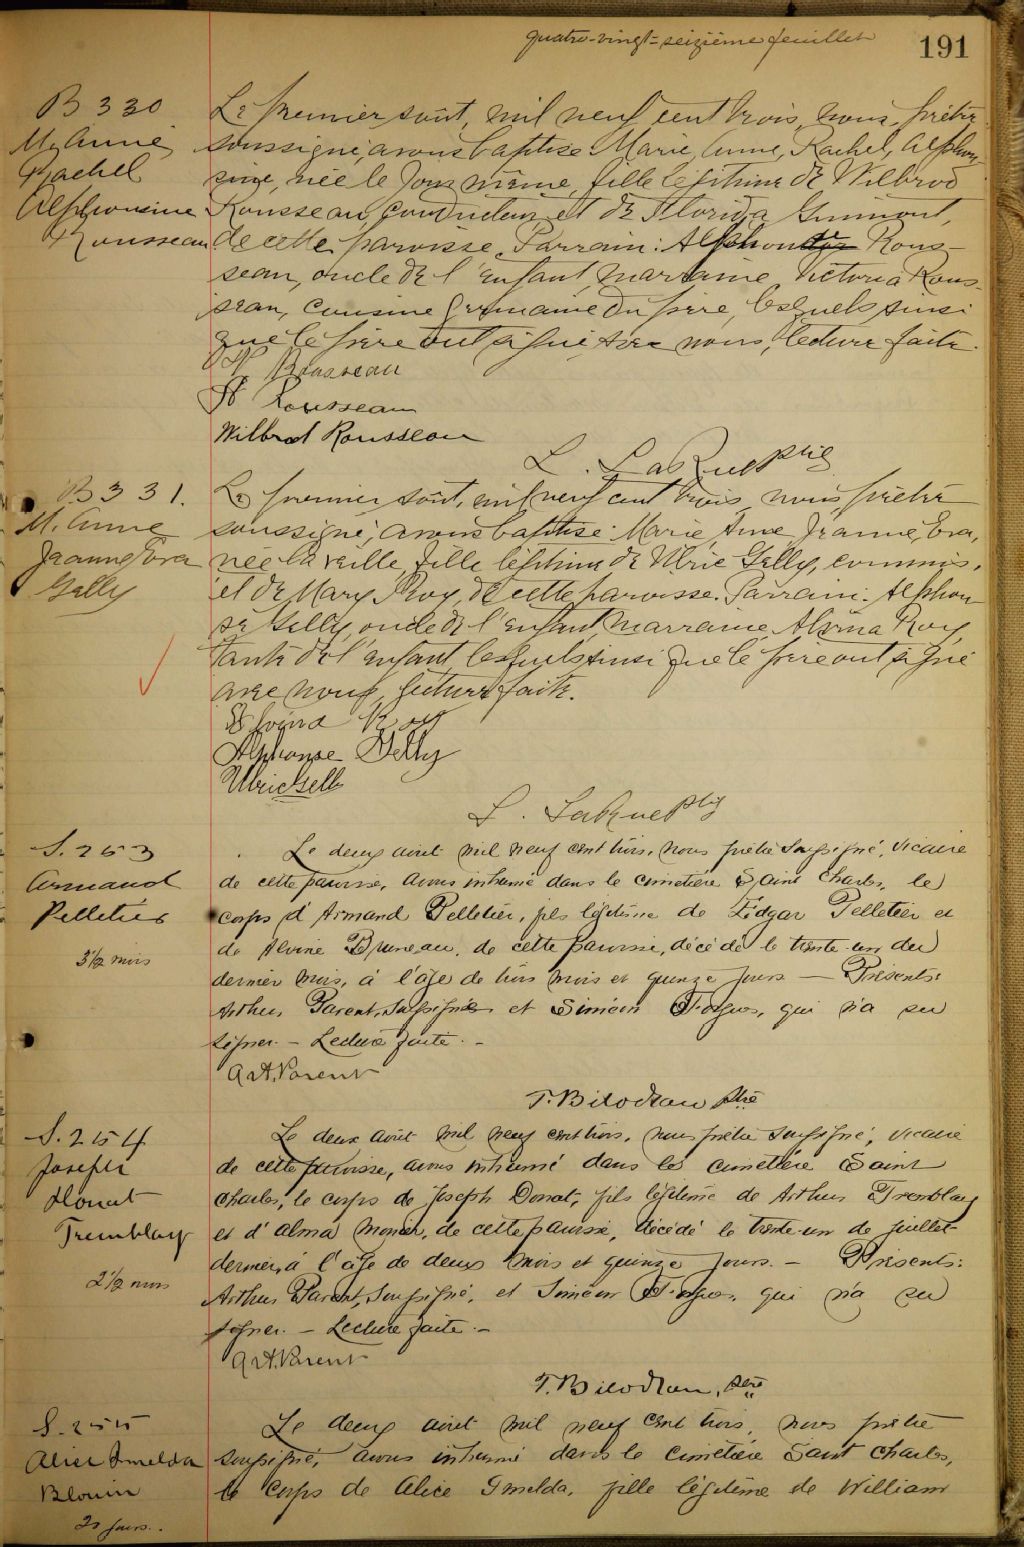 quatre-vingt-seizième feuillet
191
B 330
M. Anne
Rachel
Alphonsine
Rousseau
Le premier août, mil neuf cent trois, nous, prêtre
soussigné, avons baptisé Marie, Anne, Rachel, Alphon
sine, née le jour même, fille légitime de Wilbrod
Rousseau, conducteur et de Florida Guimont,
de cette paroisse. Parrain: Alphonse Rous-
seau, oncle de l'enfant, marraine Victoria Rous-
seau, cousine germaine du père, lesquels ainsi
que le père ont signé avec nous, lecture faite.
V Rousseau
A Rousseau
Wilbrod Rousseau
L. LaRue ptre
B 331.
M. Anne
Jeanne Eva
Gelly
Le premier août, mil neuf cent trois, nous, prêtre
soussigné, avons baptisé Marie, Anne, Jeanne, Eva,
née la veille, fille légitime de Ulric Gelly, commis,
et de Mary Roy, de cette paroisse. Parrain: Alphon
se Gelly, oncle de l'enfant, marraine, Alvina Roy,
tante de l'enfant, lesquels ainsi que le père ont signé
avec nous, lecture faite.
Alvina Roy
Alphonse Gelly
Ulric Gelly
L. LaRue ptre
S. 253
Armand
Pelletier
3½ mois
Le deux août mil neuf cent trois, nous prêtre soussigné, vicaire
de cette paroisse, avons inhumé dans le cimetière Saint Charles, le
corps d'Armand Pelletier, fils légitime de Edgar Pelletier et
de Alvine Bruneau, de cette paroisse, décédé le trente-un du
dernier mois, à l'âge de trois mois et quinze jours — Présents:
Arthur Parent, soussigné et Siméon qui n'a su
signer. - Lecture faite. -
Art. Parent
T. Bilodeau ptre
S. 254
Joseph
Donat
Tremblay
2½ mois
Le deux août mil neuf cent trois, nous prêtre soussigné, vicaire
de cette paroisse, avons inhumé dans le cimetière Saint
Charles, le corps de Joseph Donat, fils légitime de Arthur Tremblay
et d'Alma Monier, de cette paroisse, décédé le trente-un de juillet
dernier, à l'âge de deux mois et quinze jours. - Présents:
Arthur Parent, soussigné, et Siméon qui n'a su
signer. - Lecture faite. -
Art. Parent
T. Bilodeau, ptre
S. 255
Alice Imelda
Blouin
21 jours.
Le deux août mil neuf cent trois, nous prêtre
soussigné, avons inhumé dans le cimetière Saint Charles,
le corps de Alice Imelda, fille légitime de William